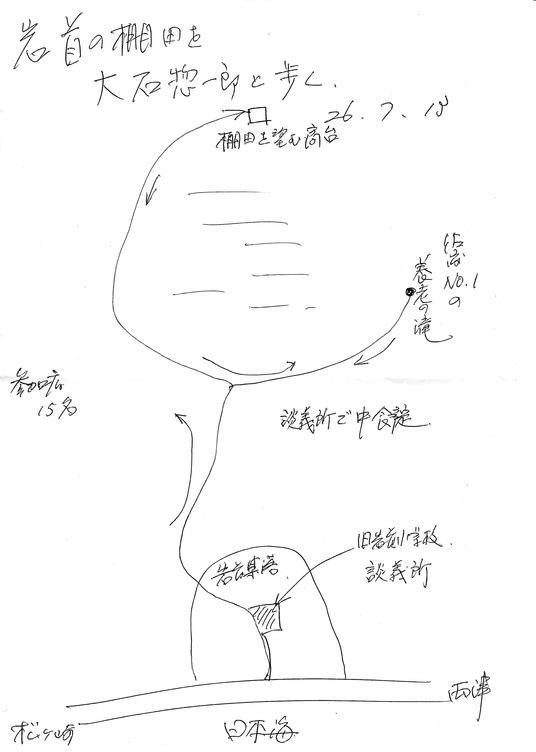 岩首の棚田を
大石惣一郎と歩く.
26.7.18
棚田を望む高台
佐渡
NO.1
の
養老の滝
参加者
15名
談義所で中食
岩首集落
旧岩首小学校.
談義所
両津
松ヶ崎
日本海